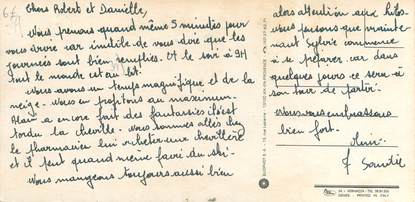 Chers Robert et Danielle,
Nous prenons quand même 5 minutes pour
vous écrire car inutile de vous dire que les
journées sont bien remplies. Et le soir à 9H
tout le monde est au lit.
Nous avons un temps magnifique et de la
neige. Nous en profitons au maximum.
Alain a encore fait des fantaisies il s'est
tordu la cheville. Nous sommes allés chez
le pharmacien lui acheter une chevillère
et il peut quand même faire du ski.
Nous mangeons toujours aussi bien
alors attention aux kilos.
Nous pensons que maintenant
Sylvie commence
à se préparer car dans
quelques jours ce sera à
son tour de partir.
Nous vous embrassons
bien fort.